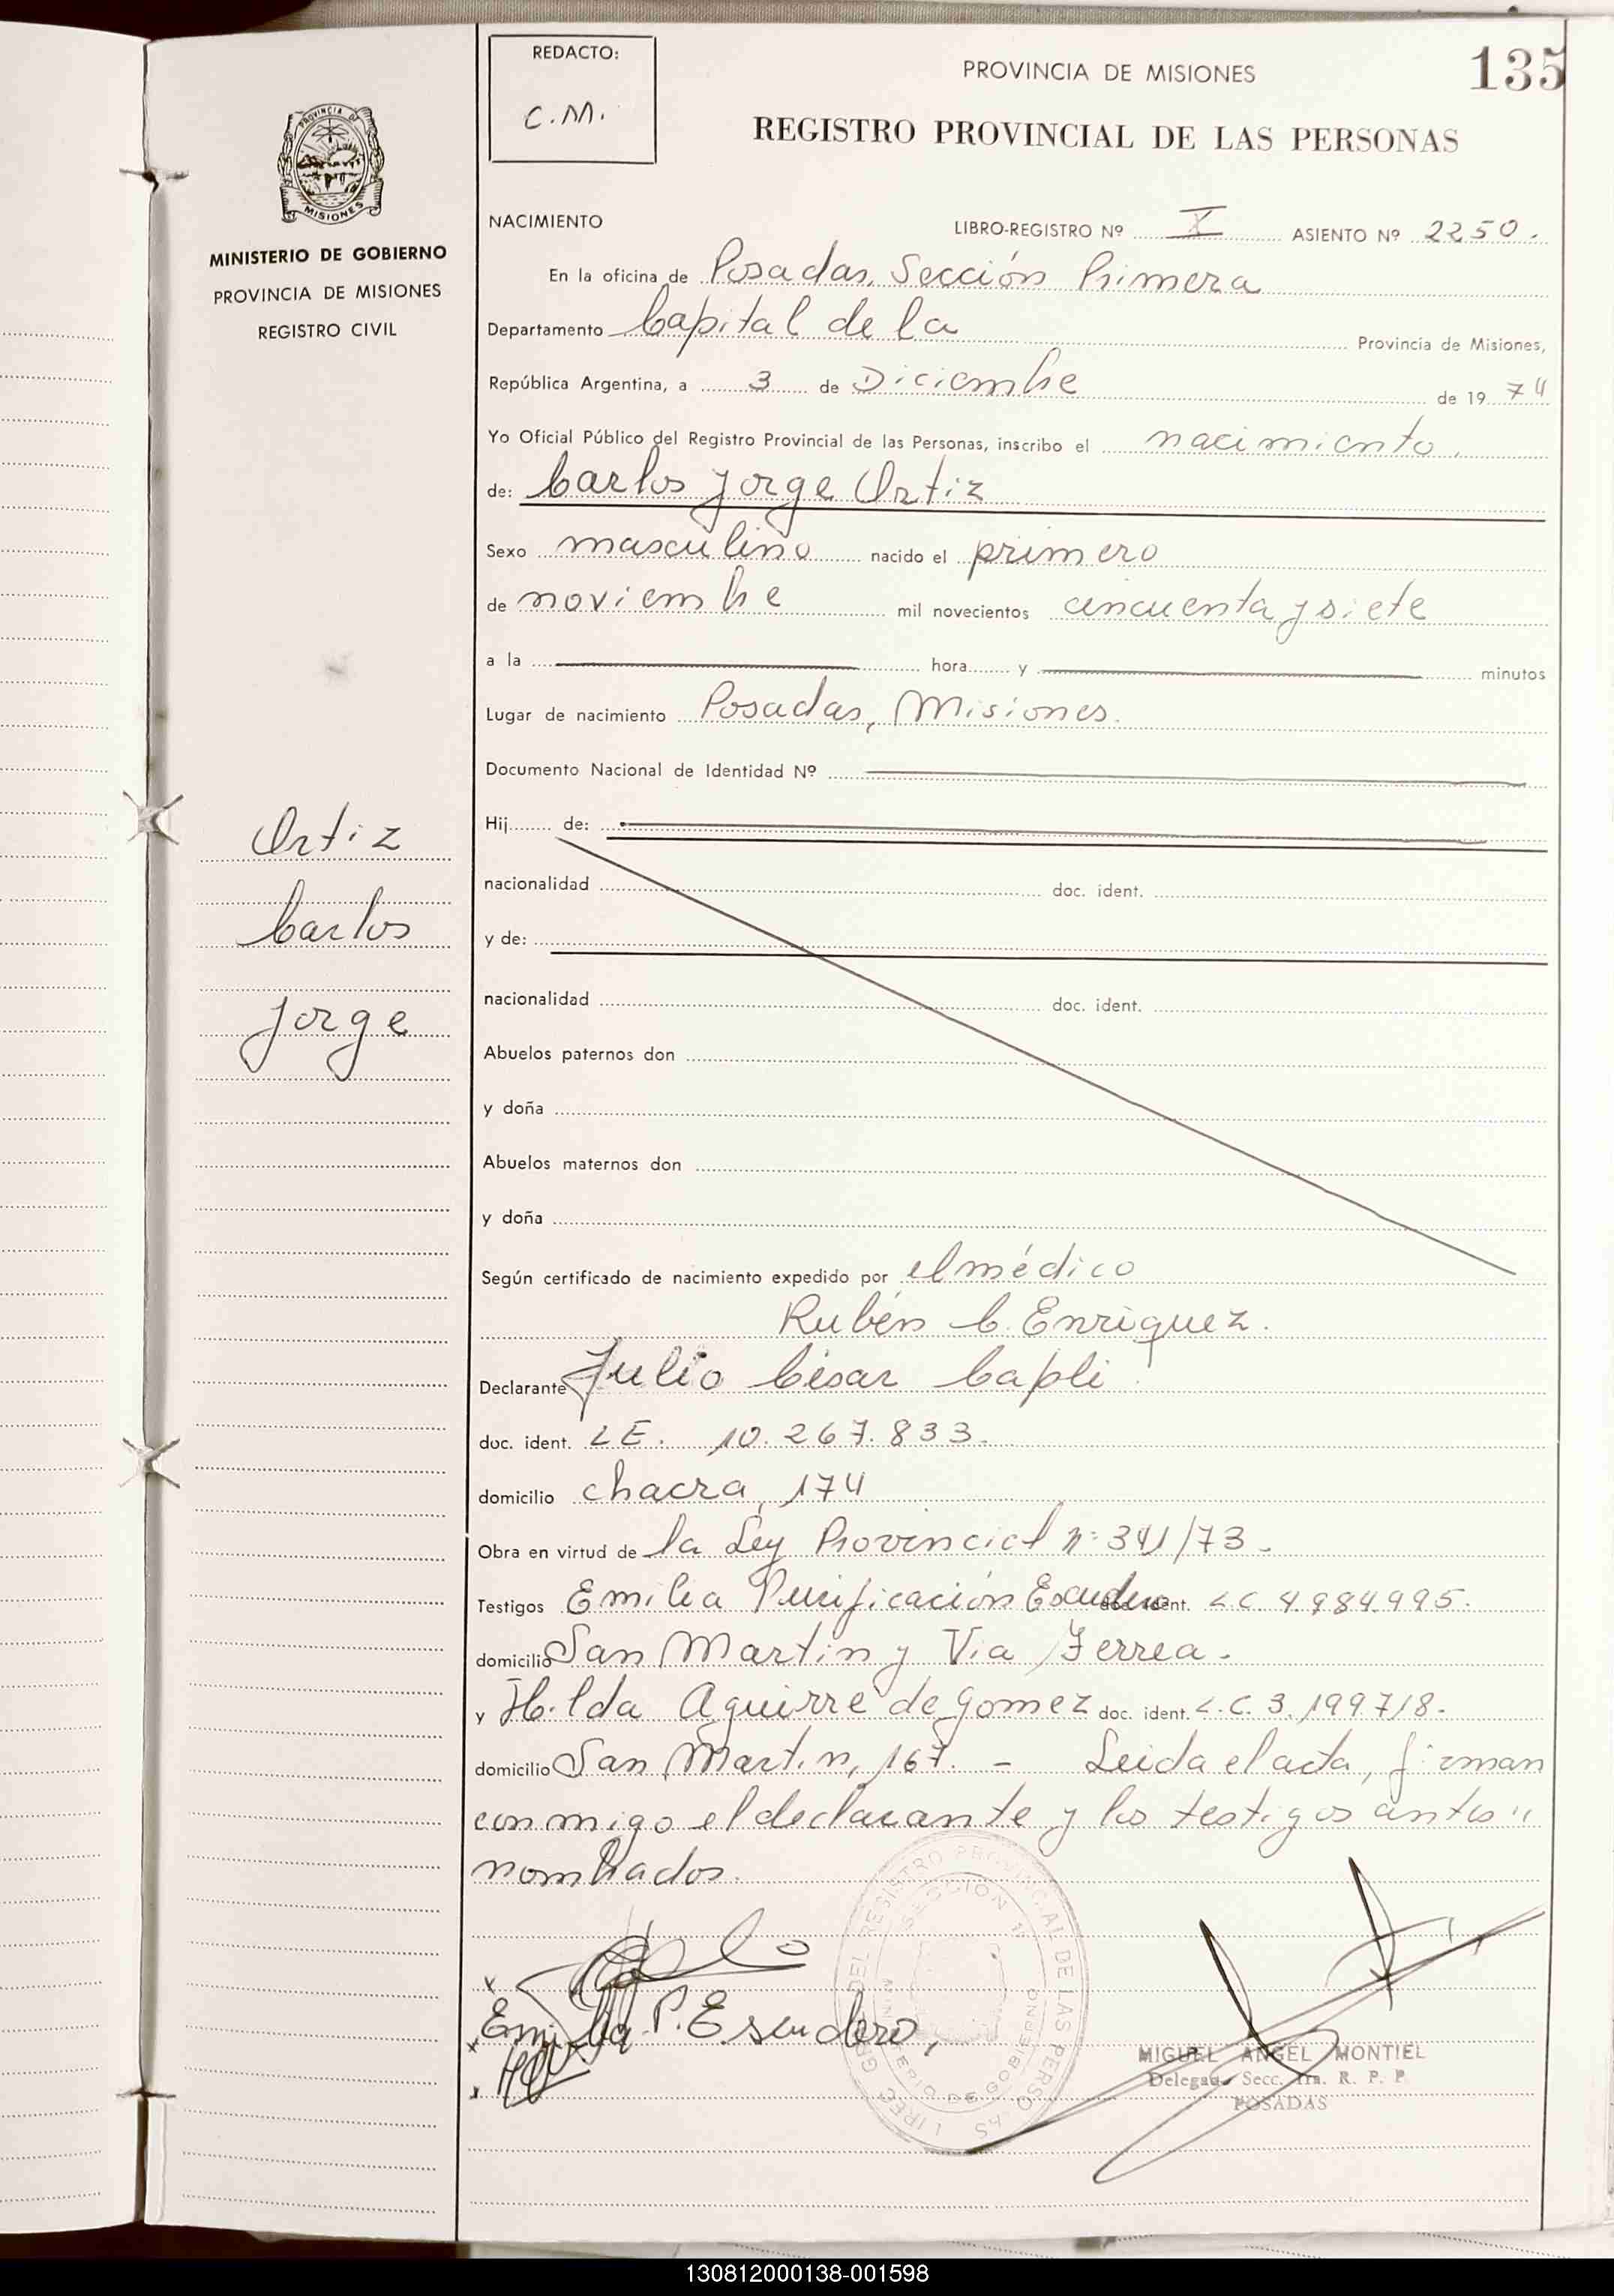 135
REDACTO:
C.M.
PROVINCIA DE MISIONES
REGISTRO PROVINCIAL DE LAS PERSONAS
PROVINCIA DE
MISIONES
MINISTERIO DE GOBIERNO
PROVINCIA DE MISIONES
REGISTRO CIVIL
NACIMIENTO
LIBRO-REGISTRO Nº X ASIENTO Nº 2250.
En la oficina de Posadas, Sección Primera
Departamento Capital de la Provincia de Misiones,
República Argentina, a 3 de Diciembre de 1974
Yo Oficial Público del Registro Provincial de las Personas, inscribo el nacimiento.
de: Carlos Jorge Ortiz
Sexo masculino nacido el primero
de noviembre mil novecientos cincuenta y siete
a la hora y minutos
Lugar de nacimiento Posadas, Misiones.
Documento Nacional de Identidad Nº
Ortiz
Carlos
Jorge
Hij de:
nacionalidad doc. ident.
y de:
nacionalidad doc. ident.
Abuelos paternos don
y doña
Abuelos maternos don
y doña
Según certificado de nacimiento expedido por el médico
Rubén C. Enriquez.
Declarante Julio César Capli
doc. ident. LE. 10.267.833.
domicilio chacra, 174
Obra en virtud de la Ley Provincial nº 341/73.
Testigos Emilia Purificación Escudero doc. ident. L C 4.984.995.
domicilio San Martin y Via Ferrea.
y Hilda Aguirre de Gomez doc. ident. L.C. 3.199.718.
domicilio San Martin, 167. - Leida el acta, firman
conmigo el declarante y los testigos antes "
nombrados.
Emilia P. Escudero,
SECCION 1ª
MIGUEL ANGEL MONTIEL
Delegado Secc. 1ra. R. P. P
POSADAS
130812000138-001598